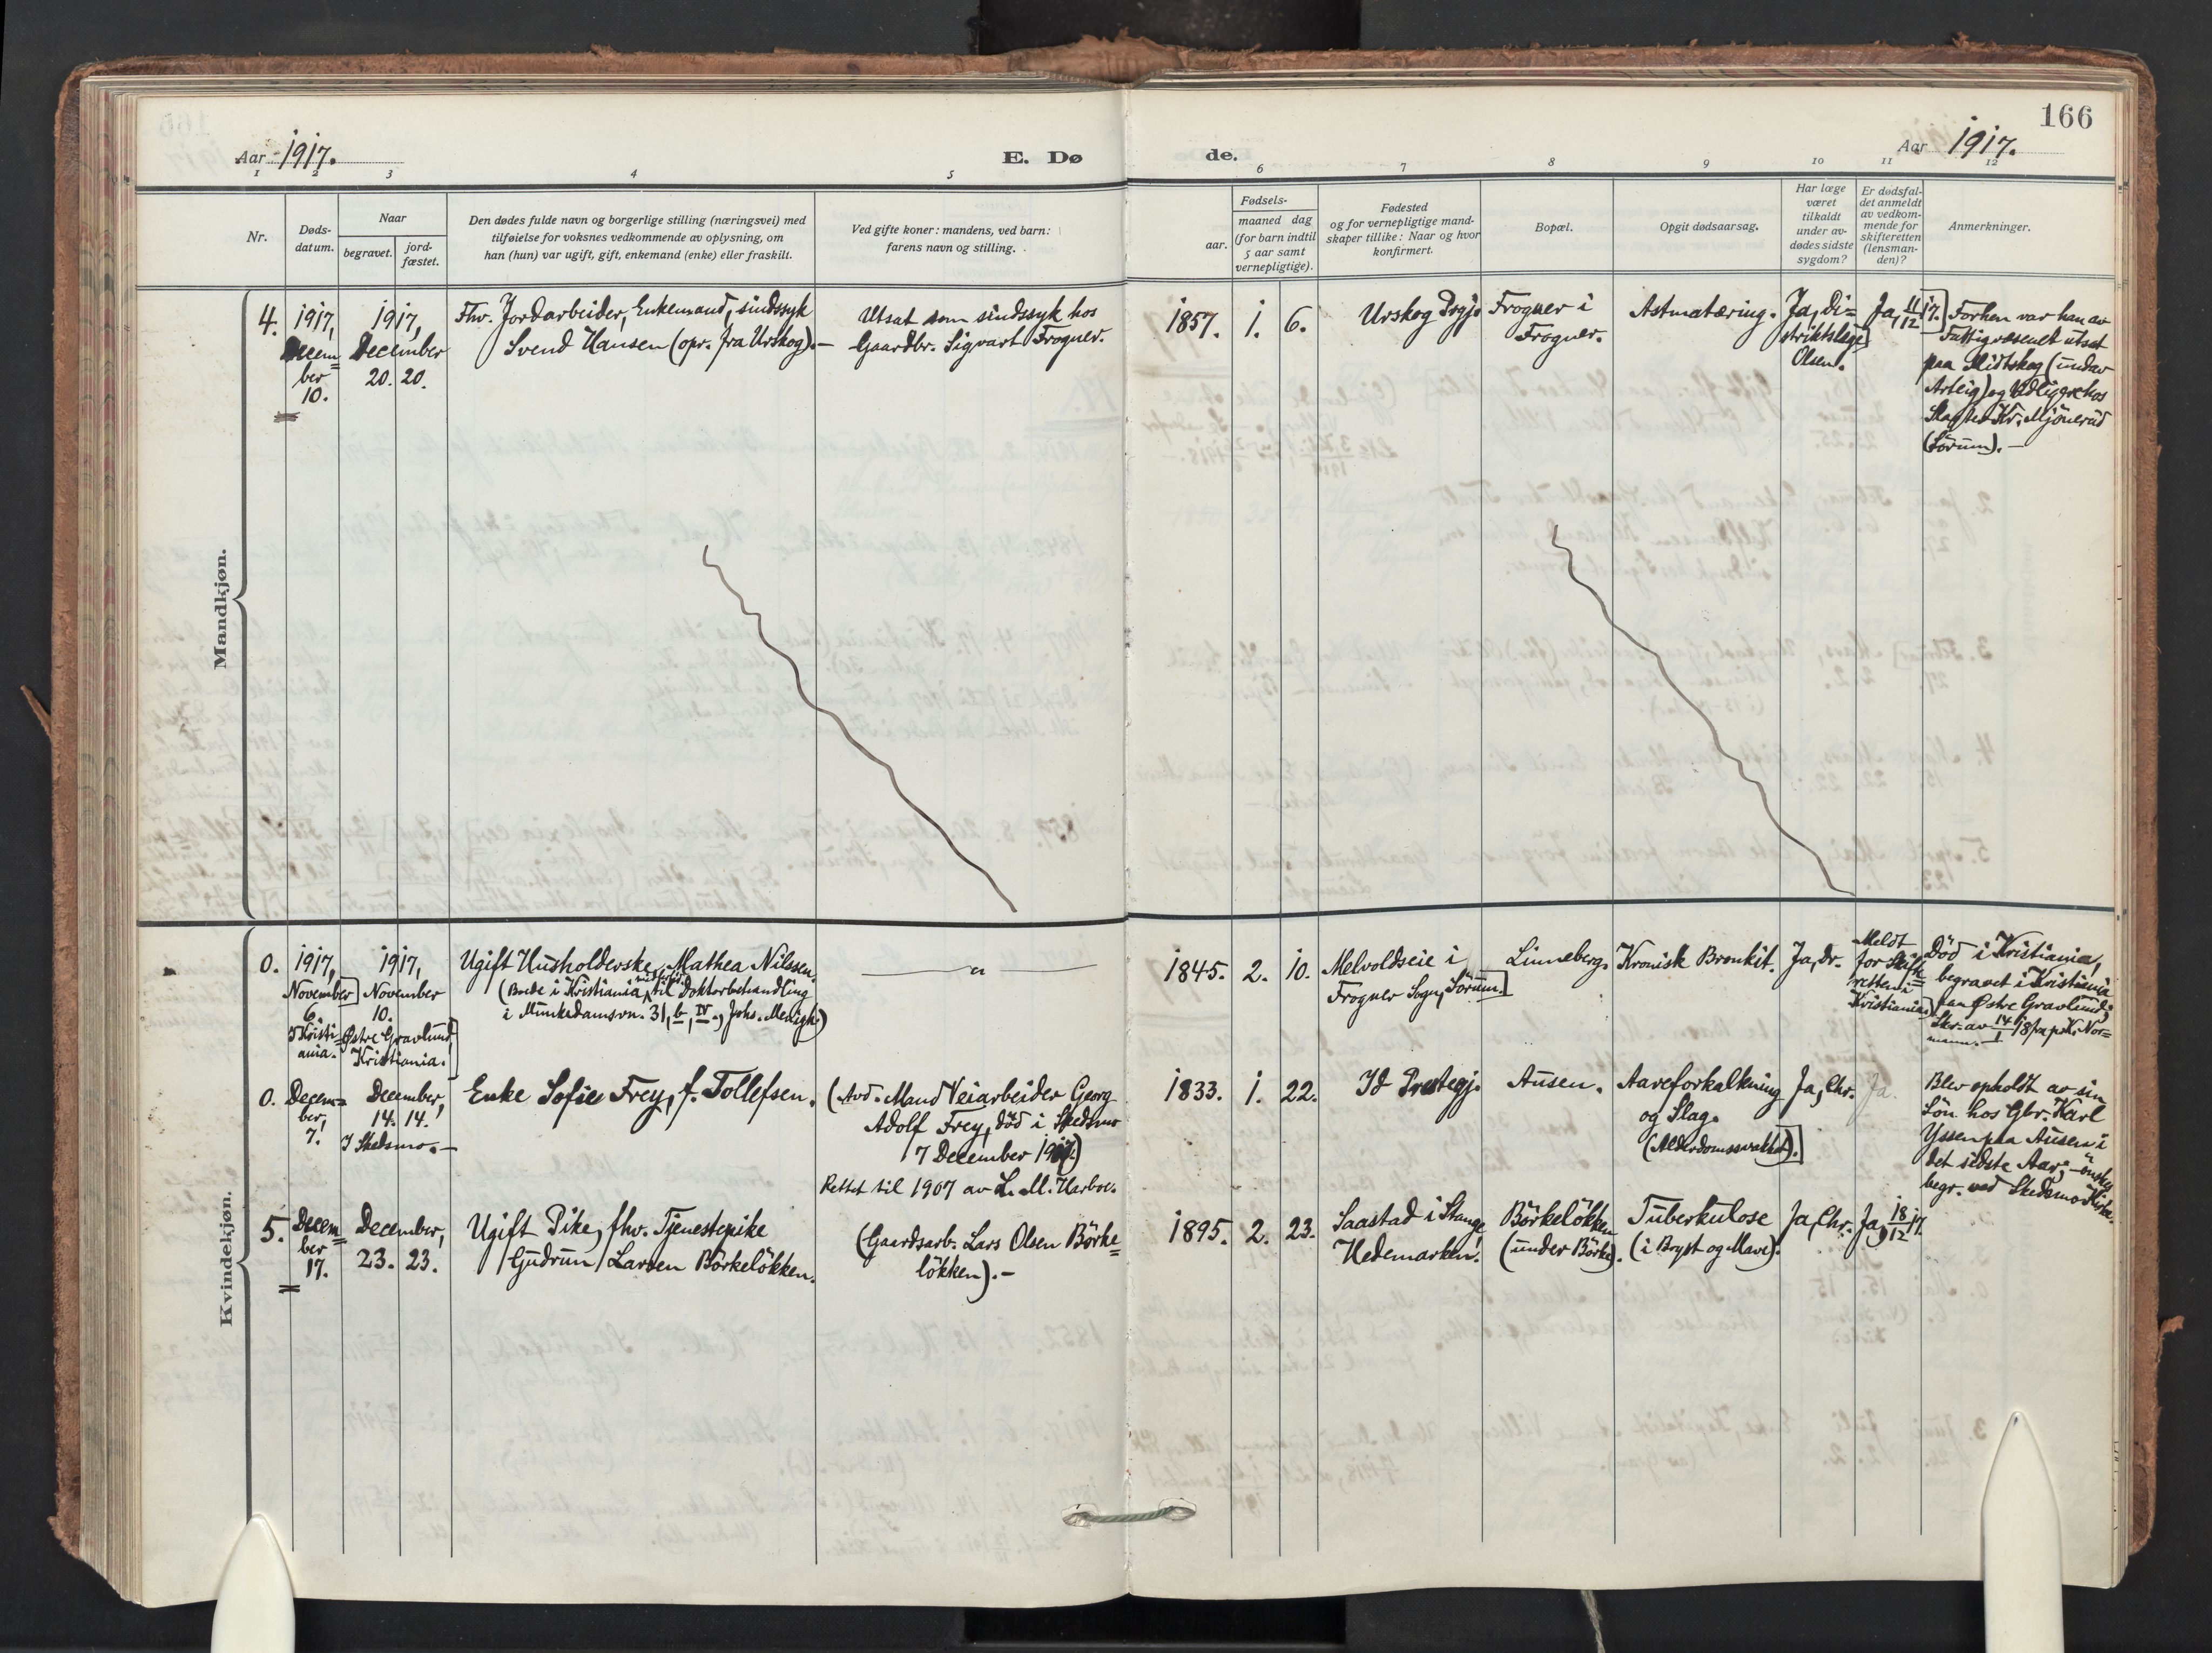 166
Aar 1917. E. Dø de. Aar 1917.
1 2 3 4 5 6 7 8 9 10 11 12
Nr.
Døds-
datum.
Naar
begravet.
jord-
fæstet.
Den dødes fulde navn og borgerlige stilling (næringsvei) med
tilføielse for voksnes vedkommende av oplysning, om
han (hun) var ugift, gift, enkemand (enke) eller fraskilt.
Ved gifte koner: mandens, ved barn:
farens navn og stilling.
Fødsels-
aar.
maaned dag
(for barn indtil
5 aar samt
vernepligtige).
Fødested
og for vernepligtige mand-
skaper tillike: Naar og hvor
konfirmert.
Bopæl.
Opgit dødsaarsag.
Har læge
været
tilkaldt
under av-
dødes sidste
sygdom?
Er dødsfal-
det anmeldt
av vedkom-
mende for
skifteretten
(lensman-
den)?
Anmerkninger.
Mandkjøn.
4.
1917,
Decem=
ber
10.
1917,
December
20. 20.
Fhv. Jordarbeider, Enkemand, sindssyk
Svend Hansen (opr. fra Urskog).—
Utsat som sindssyk hos
Gaardbr. Sigvart Frogner.
1857. 1. 6.
Urskog Prgj.
Frogner i
Frogner.
Astmatæring.
Ja, Di=
striktslæge
Olsen.
Ja, 11/12 17.]
Forhen var han av
Fattigvæsenet utsat
paa Midtskog (under
Arteig) og
Kr. Mjönerud
(Sörum).—
Kvindekjøn.
0.
1917,
November
6.
I Kristi=
ania.
1917,
November
10.
Østre Gravlund,
Kristiania.
Ugift Husholderske Mathea Nilssen.
(Boede i Kristiania, midlertid. til Doktorbehandling
i Munkedamsvn. 31, b, IV., Johs. Menigh.)
— " —
1845. 2. 10.
Melvoldseie i
Frogner Sogn, Sörum.]
Linneberg.
Kronisk Bronkit.
Ja, Dr.
Meldt
for Skifte=
retten i
Kristiania.]
Död i Kristiania,
begravet i Kristiania
paa Østre Gravlund;
Skr. av 14/1 18 fra p.K. Nor=
mann.—
0.
Decem=
ber,
7.
December,
14. 14.
I Skedsmo.—
Enke Sofie Frey, f. Tollefsen.
(Avd. Mand Veiarbeider Georg
Adolf Frey, död i Skedsmo
7 December 1917.)
Rettet til 1907 av L. M. Harboe.
1833. 1. 22.
Id Prestegj.
Ausen.
Aareforkalkning
og Slag.
(Alderdomssvakhet).]
Ja, Chr.
Ja.
Blev opholdt av sin
Sön hos Gbr. Karl
Yssen paa Ausen i
det sidste Aar; – önskes
begr. ved Skedsmo Kirke.
5.
Decem=
ber
17.
December,
23. 23.
Ugift Pike, fhv. Tjenestepike
Gudrun Larsen Börkelökken.
(Gaardsarb. Lars Olsen Börke=
lökken).—
1895. 2. 23.
Saastad i Stange,
Hedemarken.
Börkelökken
(under Börke).
Tuberkulose
(i Bryst og Mave).
Ja, Chr.
Ja, 18/12 17.